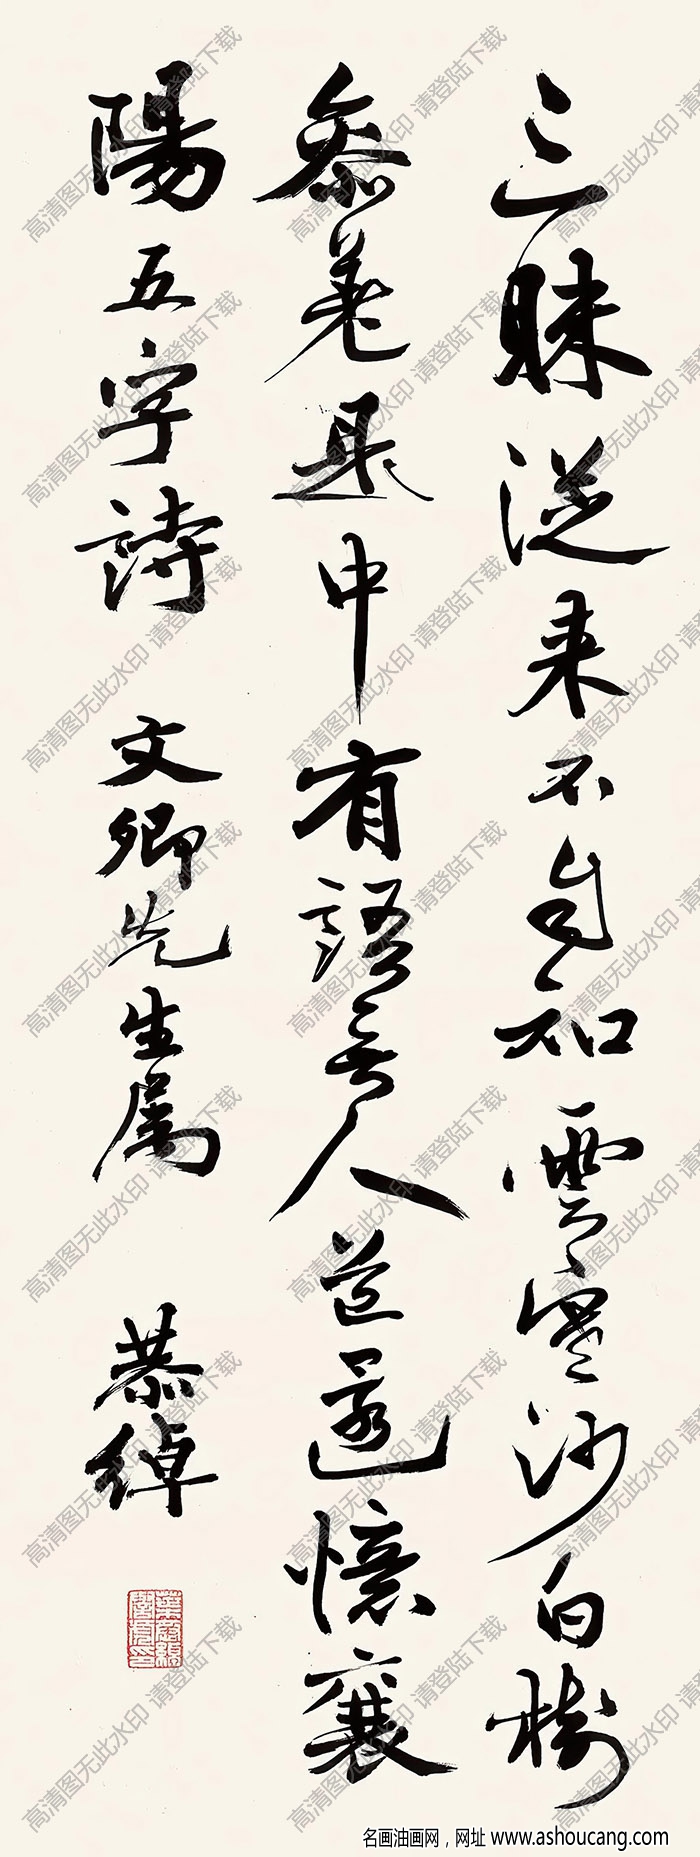 三昧從来不自知雲寒沙白樹
叅差是中有語無人道還憶襄
陽五字詩 文卿先生属 恭綽
葉恭綽
譽虎印
高清图无此水印 请登陆下载
名画油画网，网址 www.ashoucang.com